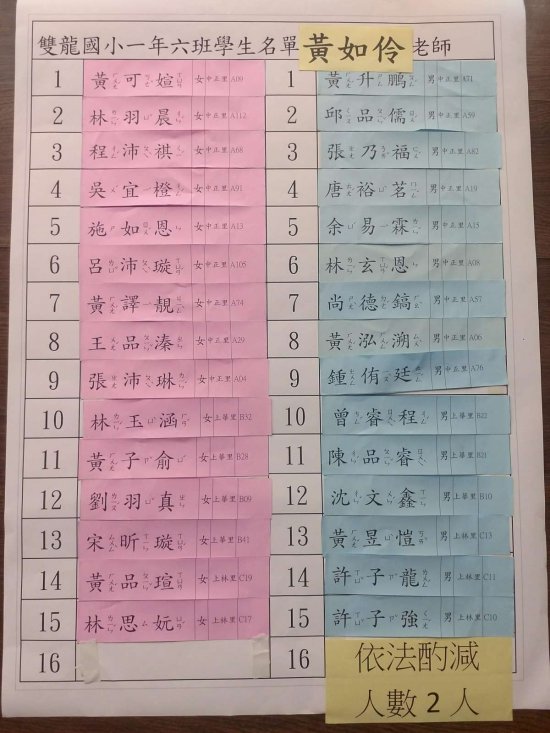 雙龍國小一年六班學生名單 黃如伶 老師
1 黃可媗 女 中正里 A09 1 黃升鵬 男 中正里 A71
2 林羽晨 女 中正里 A112 2 邱品儒 男 中正里 A59
3 程沛祺 女 中正里 A68 3 張乃福 男 中正里 A82
4 吳宜橙 女 中正里 A91 4 唐裕茗 男 中正里 A19
5 施如恩 女 中正里 A13 5 余易霖 男 中正里 A15
6 呂沛璇 女 中正里 A105 6 林玄恩 男 中正里 A08
7 黃譯靚 女 中正里 A74 7 尚德鎬 男 中正里 A57
8 王品溱 女 中正里 A29 8 黃泓溯 男 中正里 A06
9 張沛琳 女 中正里 A04 9 鍾侑廷 男 中正里 A76
10 林玉涵 女 上華里 B32 10 曾睿程 男 上華里 B22
11 黃子俞 女 上華里 B28 11 陳品睿 男 上華里 B21
12 劉羽真 女 上華里 B09 12 沈文鑫 男 上華里 B10
13 宋昕璇 女 上華里 B41 13 黃昱愷 男 上林里 C13
14 黃品瑄 女 上林里 C19 14 許子龍 男 上林里 C11
15 林思妧 女 上林里 C17 15 許子強 男 上林里 C10
16 16 依法酌減
人數2人